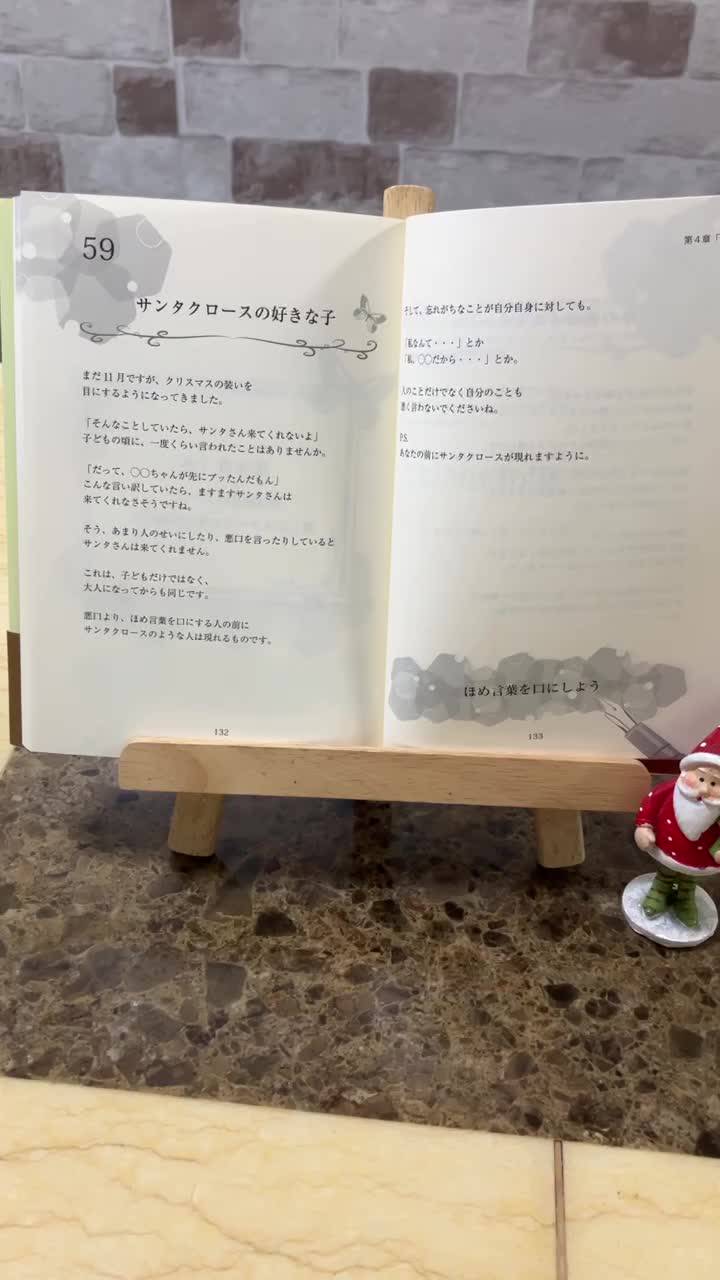 59
サンタクロースの好きな子
まだ11月ですが、クリスマスの装いを
目にするようになってきました。
「そんなことしていたら、サンタさん来てくれないよ」
子どもの頃に、一度くらい言われたことはありませんか。
「だって、〇〇ちゃんが先にブッたんだもん」
こんな言い訳していたら、ますますサンタさんは
来てくれなさそうですね。
そう、あまり人のせいにしたり、悪口を言ったりしていると
サンタさんは来てくれません。
これは、子どもだけではなく、
大人になってからも同じです。
悪口より、ほめ言葉を口にする人の前に
サンタクロースのような人は現れるものです。
132
第4章「
そして、忘れがちなことが自分自身に対しても。
「私なんて・・・」とか
「私、〇〇だから・・・」とか。
人のことだけでなく自分のことも
悪く言わないでくださいね。
P.S.
あなたの前にサンタクロースが現れますように。
ほめ言葉を口にしよう
133